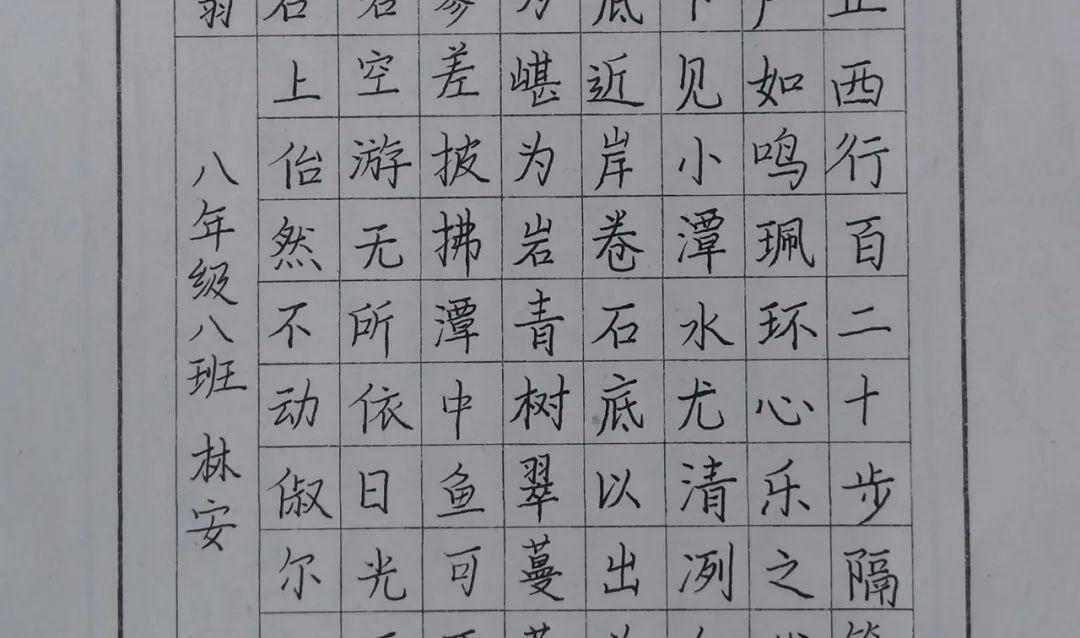 西行百二十步隔
如鸣珮环心乐之
见小潭水尤清冽
底近岸卷石底以出
为嵁为岩青树翠蔓
参差披拂潭中鱼可
若空游无所依日光
石上佁然不动俶尔
八年级八班 林安